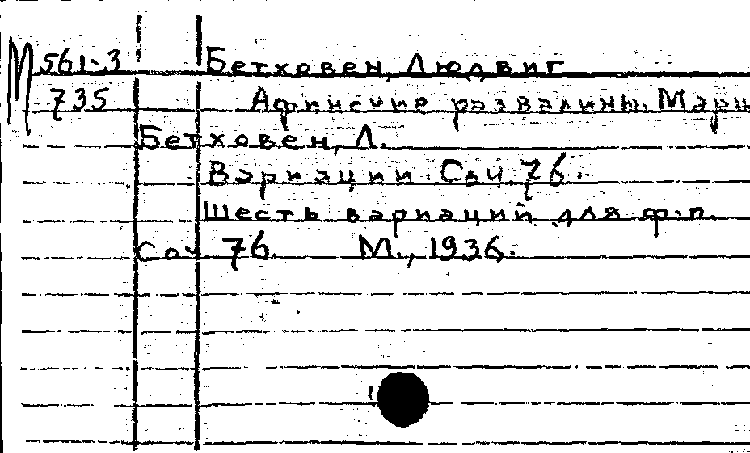 М 561-3 Бетховен, Людвиг
735 Афинские развалины. Марш
Бетховен, Л.
Вариации. Соч. 76.
Шесть вариаций для ф.п.
Соч. 76. М., 1936.